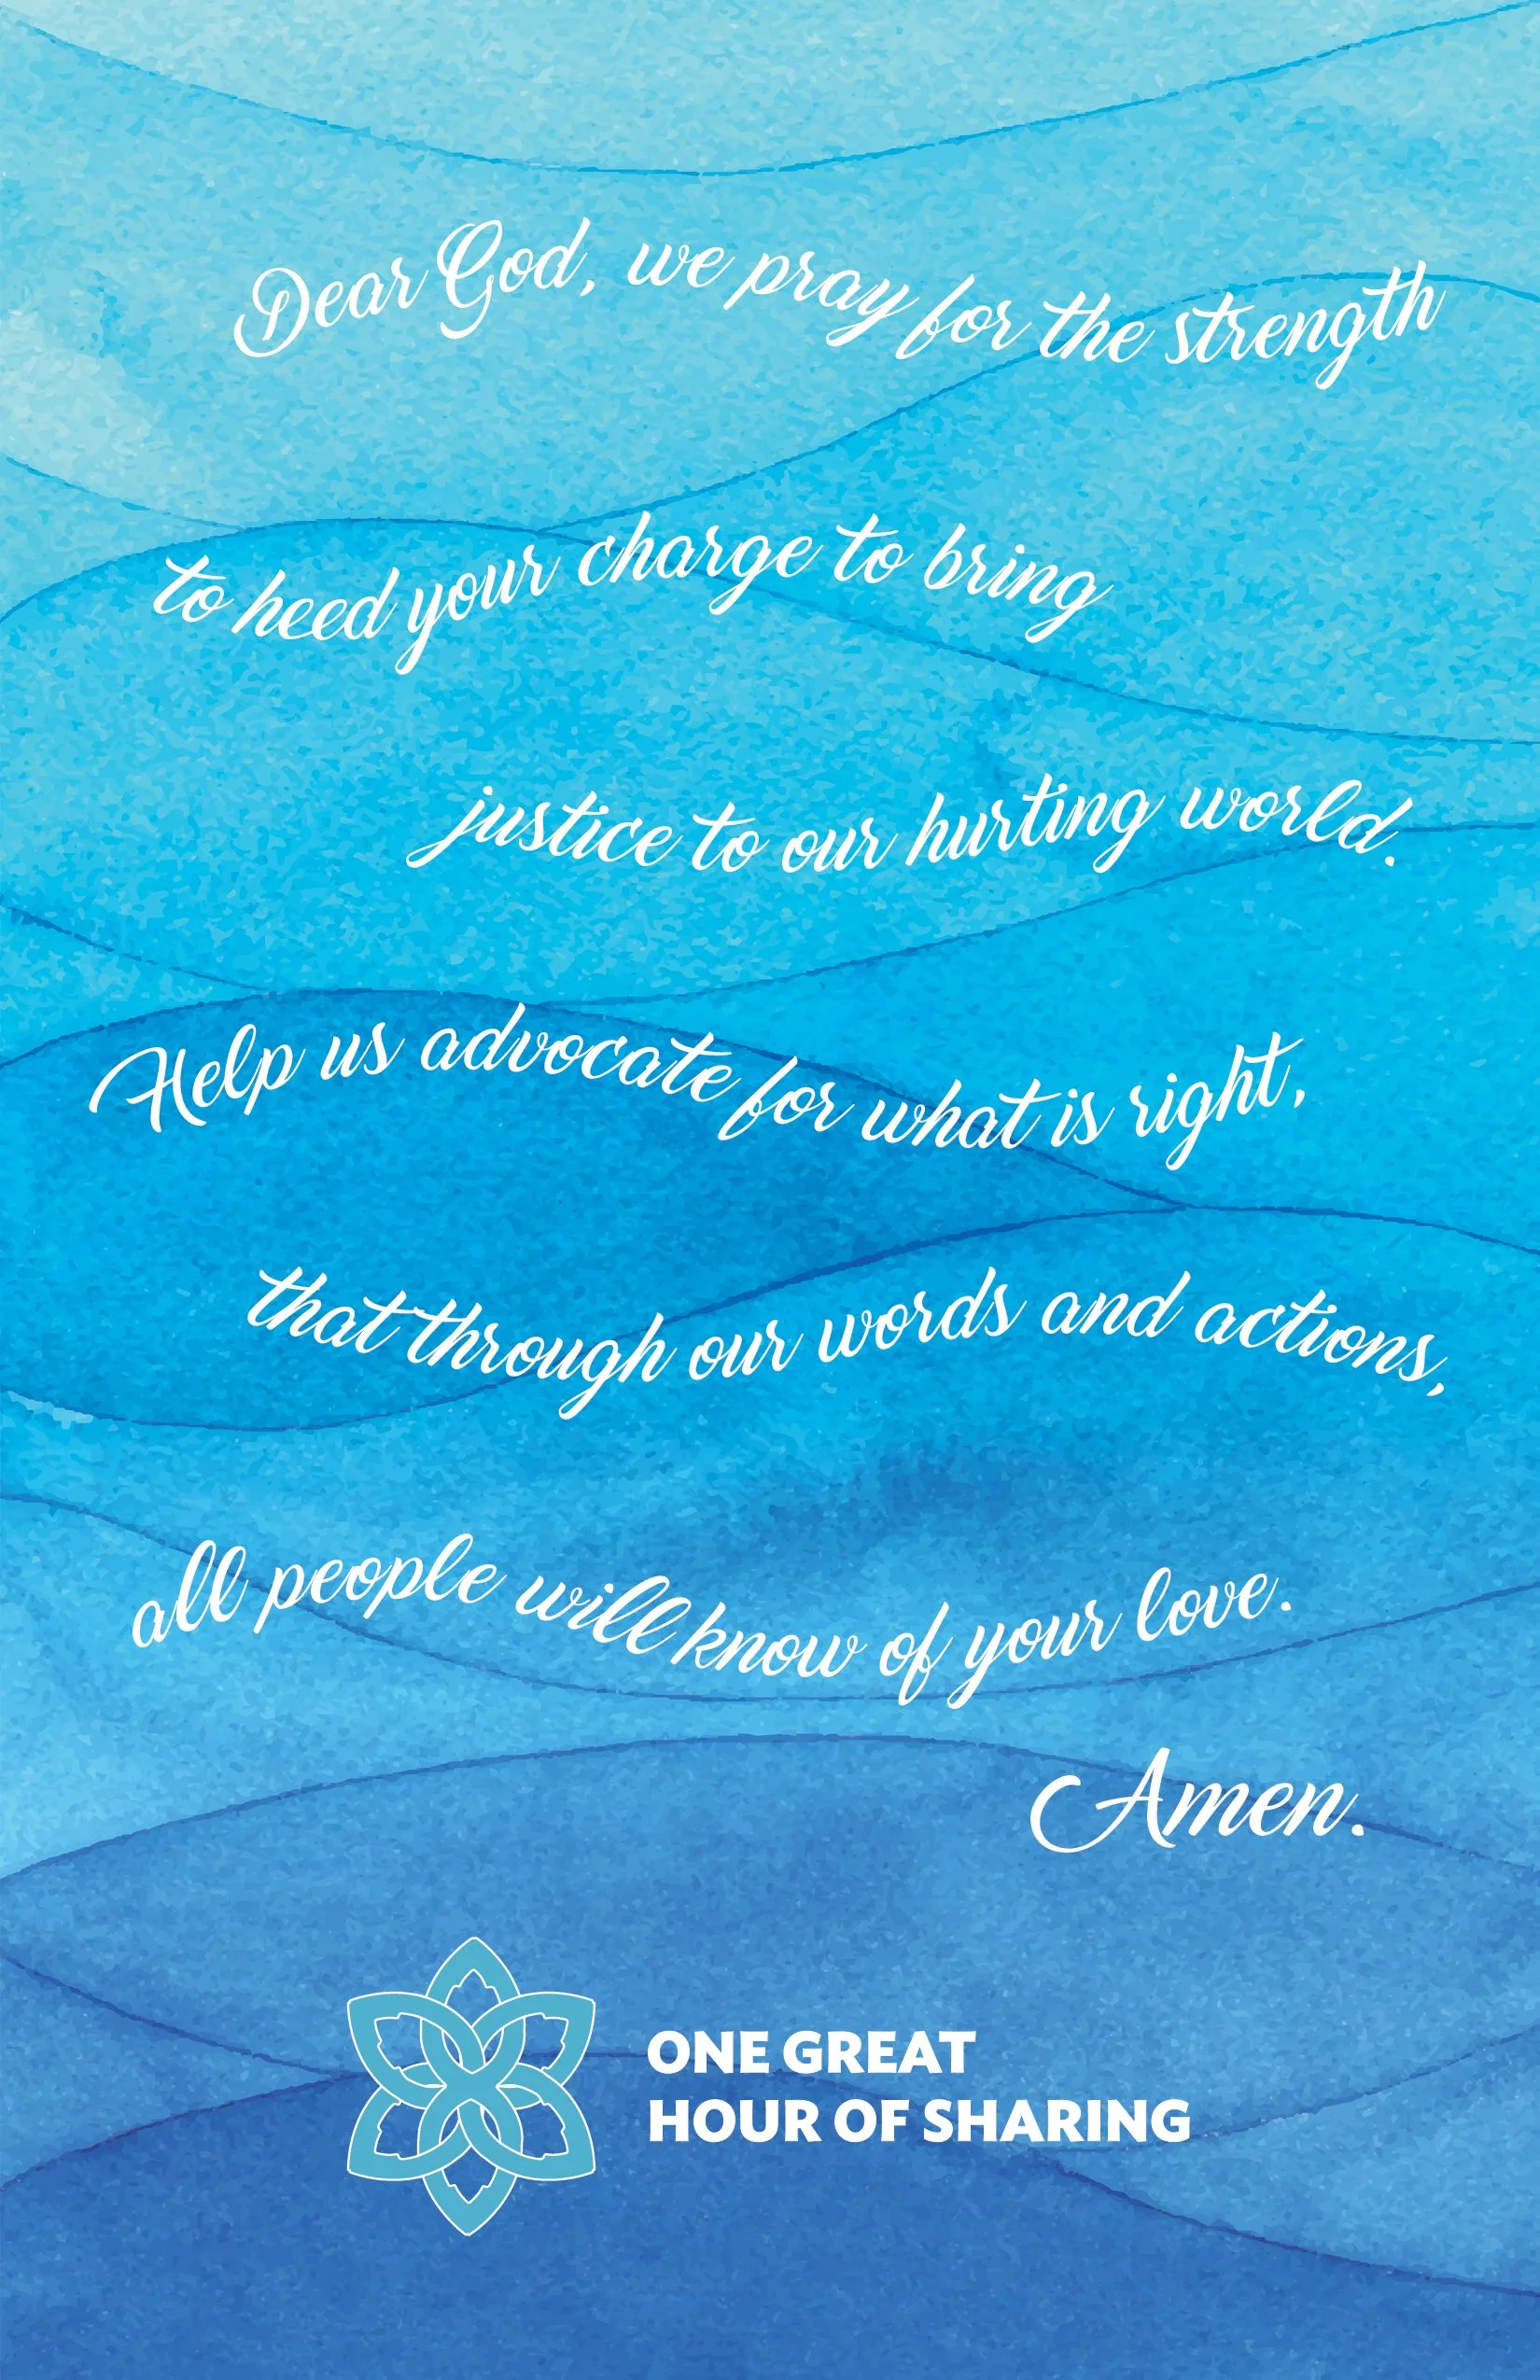 Dear God, we pray for the strength
to heed your charge to bring
justice to our hurting world.
Help us advocate for what is right,
that through our words and actions,
all people will know of your love.
Amen.
ONE GREAT
HOUR OF SHARING